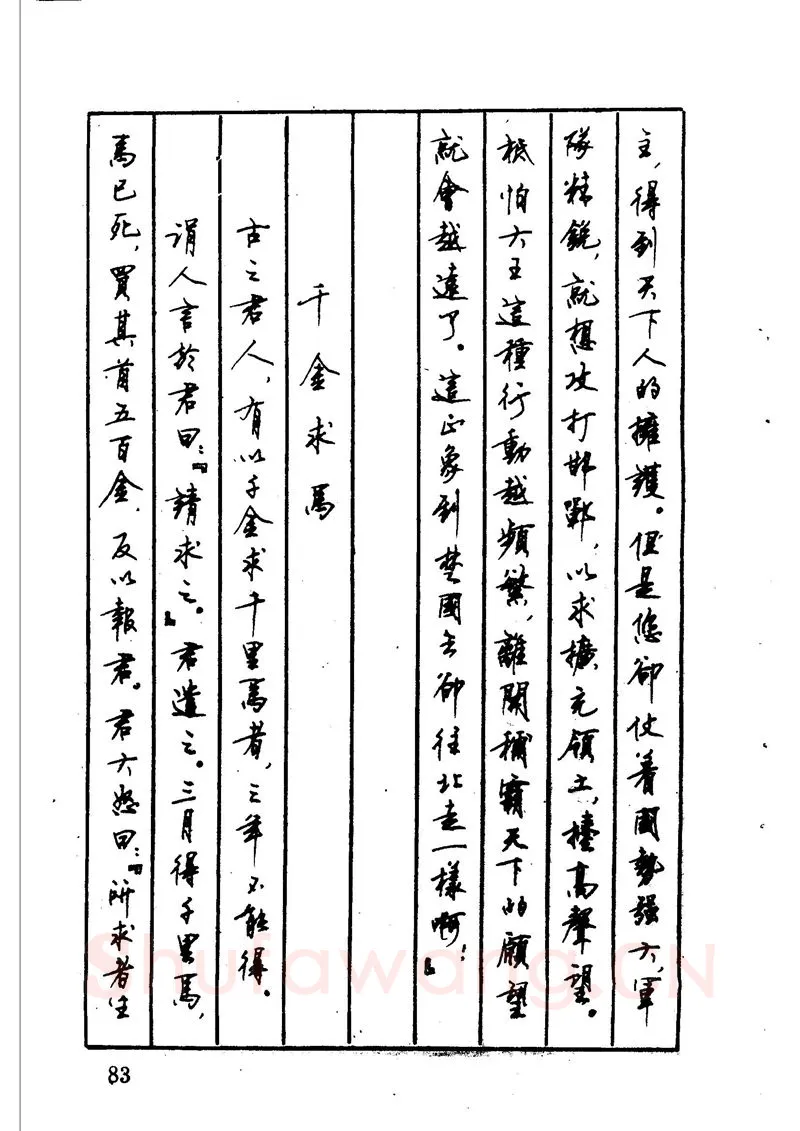 主，得到天下人的擁護。但是您卻仗着國勢强大，軍
隊精鋭，就想攻打邯鄲，以求擴充領土，擡高聲望。
祇怕大王這種行動越頻繁，離開稱霸天下的願望
就會越遠了。這正象到楚國去卻往北走一樣啊！』
千金求馬
古之君人，有以千金求千里馬者，三年不能得。
涓人言於君曰：『請求之。』君遣之。三月得千里馬，
馬已死，買其首五百金，反以報君。君大怒曰：『所求者生
83
Shufawang.CN